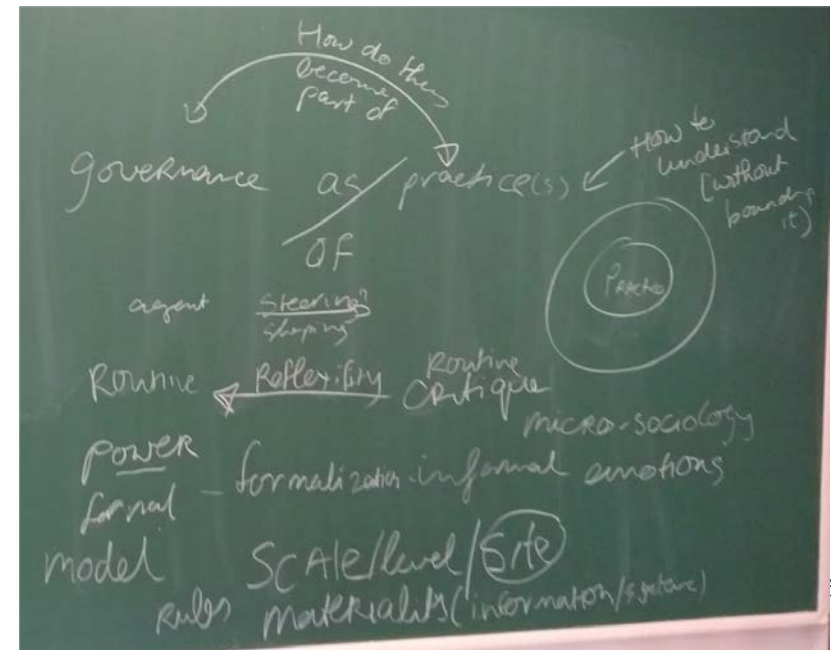 How do they
become
part of
governance as / practice(s)
How to
understand
(without
bounding
it)
OF
PRACTICE
agent steering
shaping
Routine Reflexivity Routine
CRitique
micro-sociology
power
formal - formalization - informal emotions
model SCAle/level/Site
Rules Materiality (information/